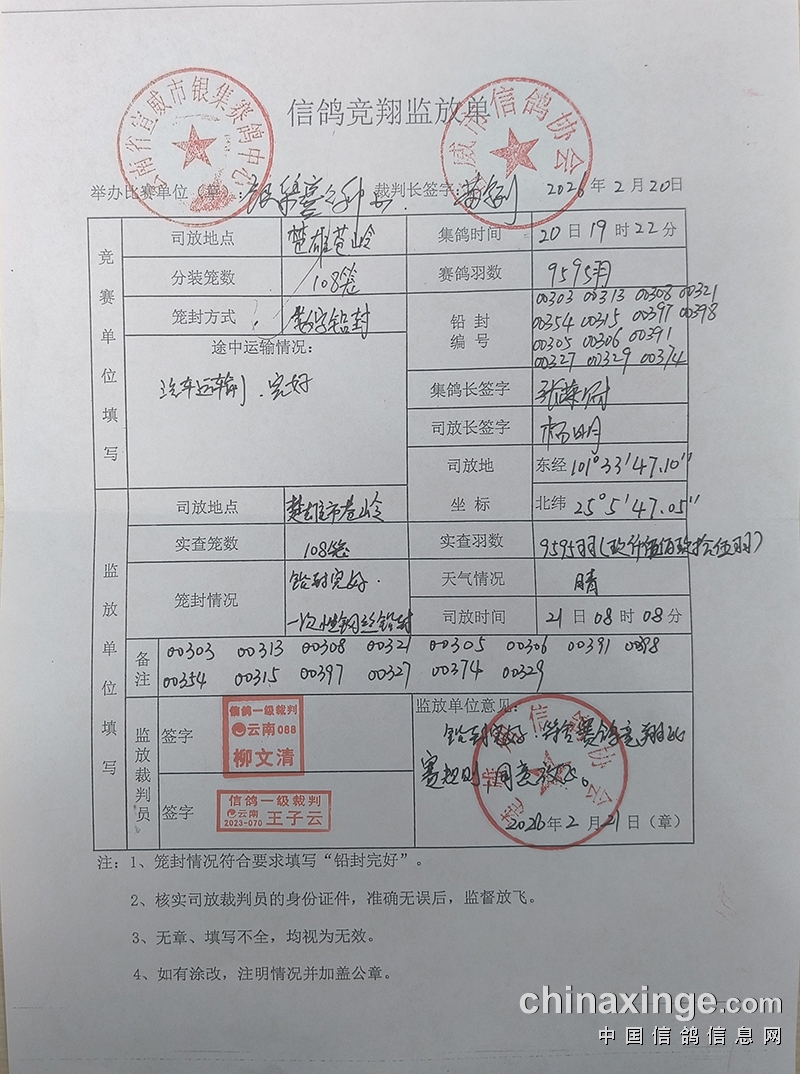 信鸽竞翔监放单
云南省宣威市银集赛鸽中心
威市信鸽协会
举办比赛单位（章）： 裁判长签字： 2026年2月20日
竞赛单位填写
司放地点 楚雄苍岭 集鸽时间 20日19时22分
分装笼数 108笼 赛鸽羽数 9595羽
笼封方式 数字铅封 铅封编号
00303 00313 00308 00321
00354 00315 00397 00398
00305 00306 00391
00327 00329 00374
途中运输情况：
汽车运输，完好
集鸽长签字
司放长签字 杨明
司放地坐标 东经101°33′47.10″
北纬25°5′47.05″
监放单位填写
司放地点 楚雄市苍岭
实查笼数 108笼 实查羽数 9595羽(玖仟伍佰玖拾伍羽)
笼封情况 铅封完好.
一次性钢丝铅封
天气情况 晴
司放时间 21日08时08分
备注
00303 00313 00308 00321 00305 00306 00391 00398
00354 00315 00397 00327 00374 00329
监放裁判员
签字 信鸽一级裁判
云南088
柳文清
签字 信鸽一级裁判
云南
2023-070 王子云
监放单位意见：
铅封完好，符合赛鸽竞翔比
赛规则，同意放飞。
信鸽协会
2026年2月21日（章）
注：1、笼封情况符合要求填写“铅封完好”。
2、核实司放裁判员的身份证件，准确无误后，监督放飞。
3、无章、填写不全，均视为无效。
4、如有涂改，注明情况并加盖公章。
chinaxinge.com
中国信鸽信息网